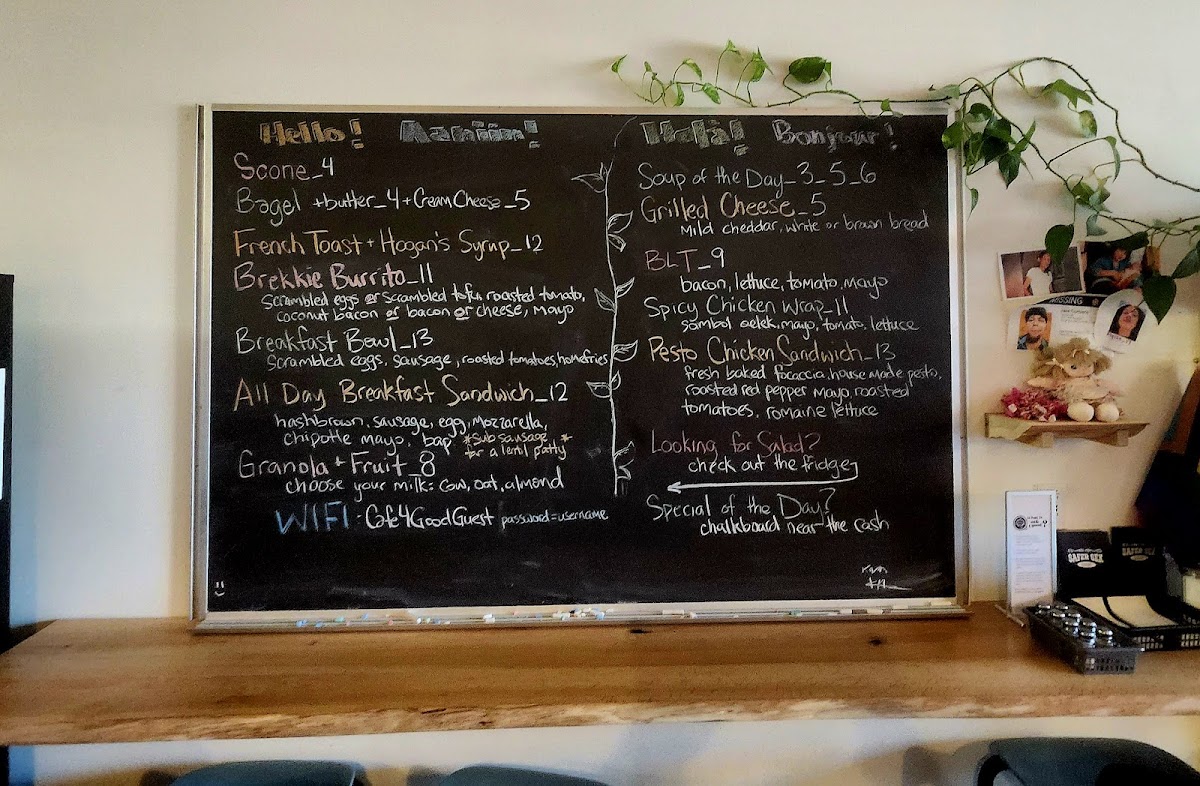 Hello! Aaniin!
Scone_4
Bagel +butter_4 + Cream Cheese_5
French Toast + Hogan's Syrup_12
Brekkie Burrito_11
scrambled eggs or scrambled tofu, roasted tomato,
coconut bacon or bacon or cheese, mayo
Breakfast Bowl_13
scrambled eggs, sausage, roasted tomatoes, homefries
All Day Breakfast Sandwich_12
hashbrown, sausage, egg, mozzarella,
chipotle mayo, bap *sub sausage *
for a lentil patty
Granola + Fruit_8
choose your milk: cow, oat, almond
WIFI: Cafe4GoodGuest password=username
Holà! Bonjour!
Soup of the Day_3_5_6
Grilled Cheese_5
Mild cheddar, white or brown bread
BLT_9
bacon, lettuce, tomato, mayo
Spicy Chicken Wrap_11
sambal oelek, mayo, tomato, lettuce
Pesto Chicken Sandwich_13
fresh baked focaccia, house made pesto,
roasted red pepper mayo, roasted
tomatoes, romaine lettuce
Looking for Salad?
check out the fridge
Special of the Day?
chalkboard near the cash
MISSING
SAFER SEX
SAFER SEX